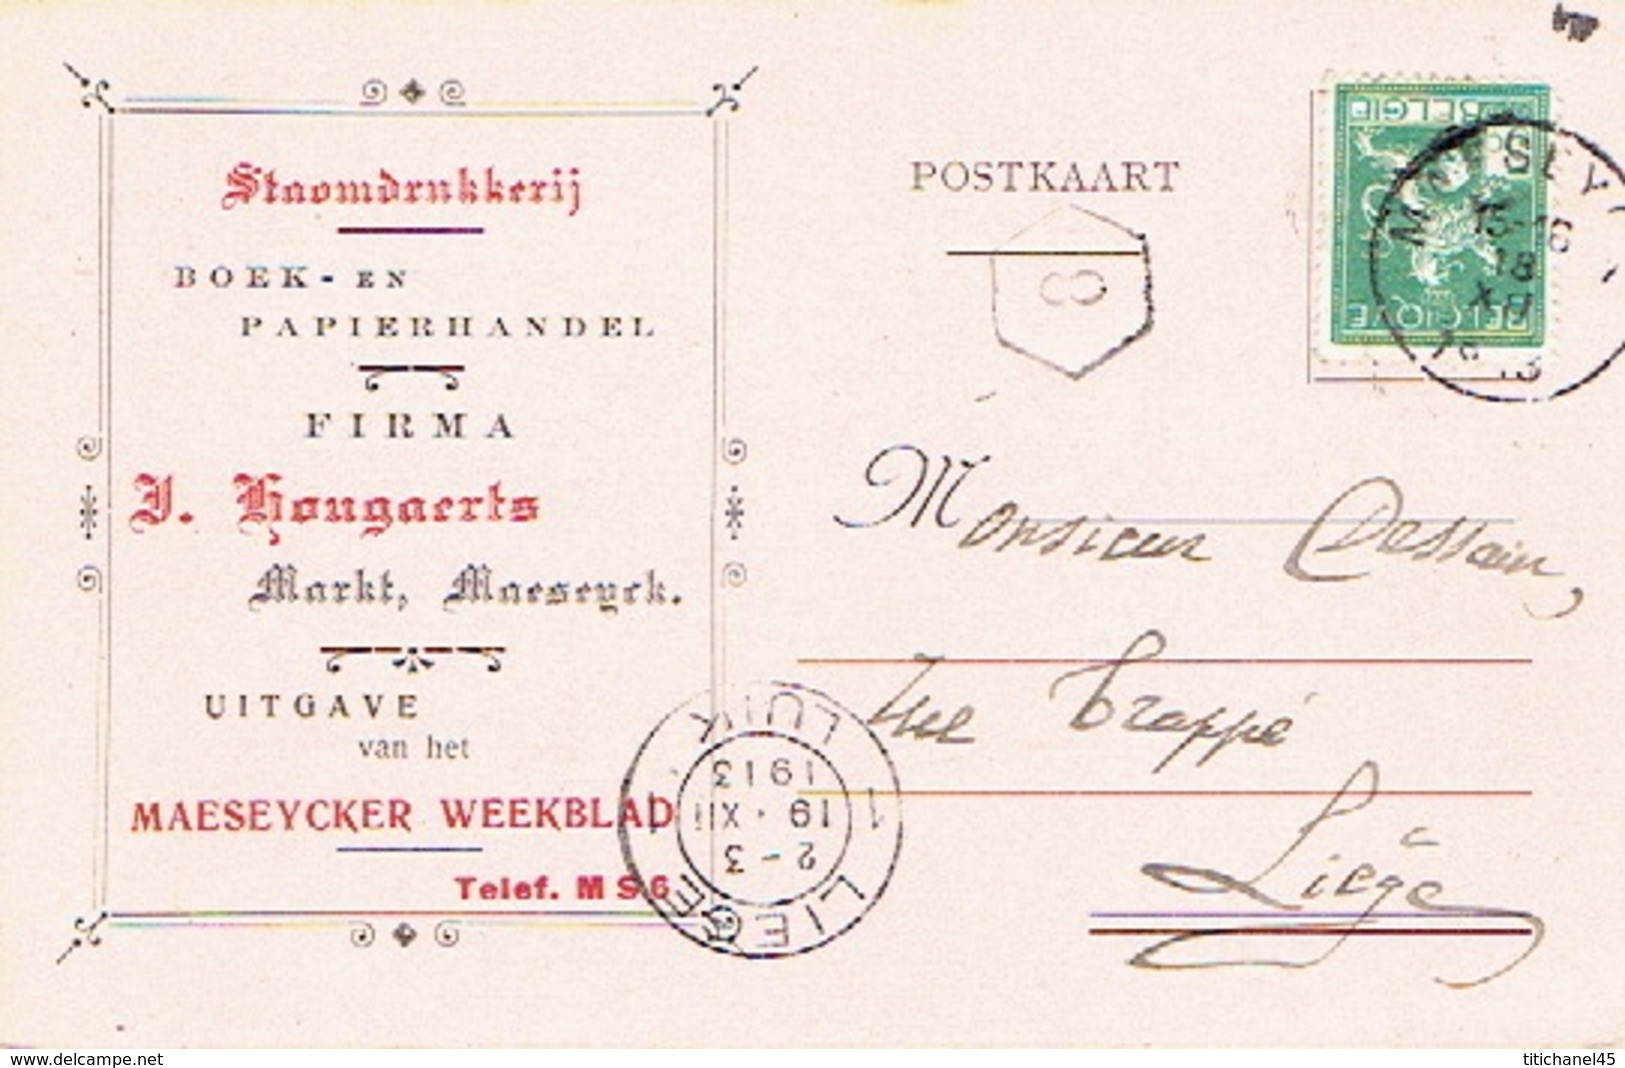 Stoomdrukkerij
BOEK- EN
PAPIERHANDEL
FIRMA
J. Hougaerts
Markt, Maeseyck.
UITGAVE
van het
MAESEYCKER WEEKBLAD
Telef. M S 6
POSTKAART
8
BELGIË
BELGIQUE
MAESEYCK
15-16
18
XII
1913
LIEGE 1 LUIK 1
2-3
19·XII
1913
Monsieur Dessain,
rue Trappé
Liège
www.delcampe.net
titichanel45